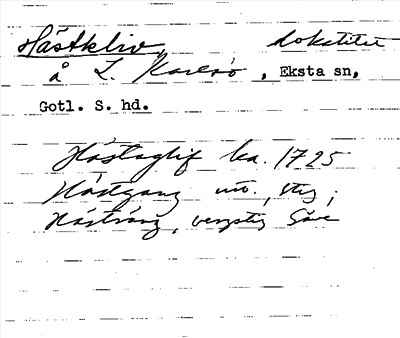 Hästkliv, lokalitet
å L. Karlsö, Eksta sn,
Gotl. S. hd.
Hästaglif ka. 1725
Hästgang uo., stig;
Hästväng, vergstig Säve